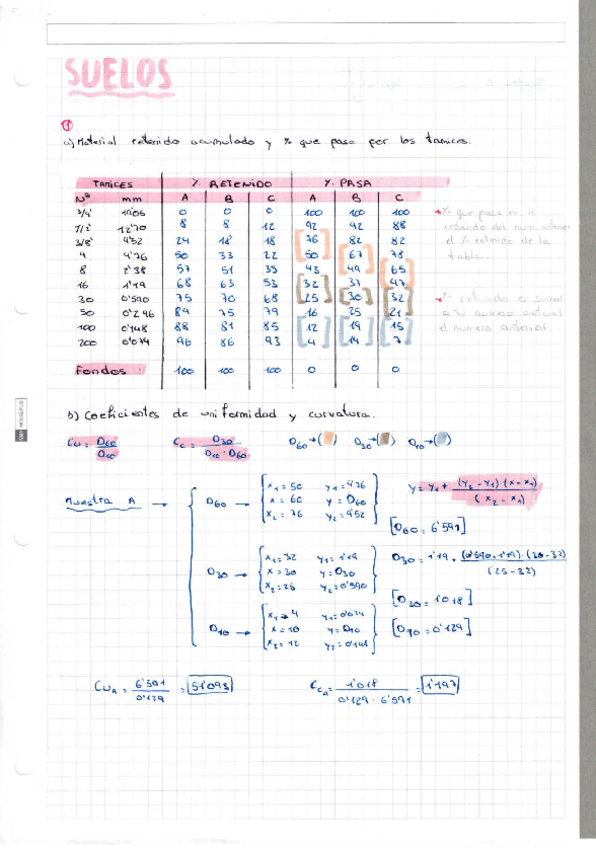 SUELOS
1
a) Material retenido acumulado y % que pasa por los tamices.
TAMICES % RETENIDO % PASA
Nº mm A B C A B C
3/4" 19'05 0 0 0 100 100 100
1/2" 12'70 8 8 12 92 92 88
3/8" 9'52 24 18 18 76 82 82
4 4'76 50 33 22 50 67 78
8 2'38 57 51 35 43 49 65
16 1'19 68 63 53 32 37 47
30 0'590 75 70 68 25 30 32
50 0'296 84 75 79 16 25 21
100 0'148 88 81 85 12 19 15
200 0'074 96 86 93 4 14 7
Fondos: 100 100 100 0 0 0
% que pasa es
el % retenido de la
tabla.
% retenido es sumar
el numero anterior
b) Coeficientes de uniformidad y curvatura.
Cu = D60 / D10
Cc = D30 / D10 · D60
D60 → ( ) D30 → ( ) D10 → ( )
Muestra A →
D60 →
x1 = 50 y1 = 4'76
x = 60 y = D60
x2 = 76 y2 = 9'52
y = y1 + (y2 - y1) (x - x1) / (x2 - x1)
[D60 = 6'591]
D30 →
x1 = 32 y1 = 1'19
x = 30 y = D30
x2 = 25 y2 = 0'590
D30 = 1'19 + (0'590 - 1'19) · (30 - 32) / (25 - 32)
[D30 = 1'018]
D10 →
x1 = 4 y1 = 0'074
x = 10 y = D10
x2 = 12 y2 = 0'148
[D10 = 0'129]
CuA = 6'591 / 0'129 = 51'093
CcA = 1'018 / 0'129 · 6'591 = 1'197